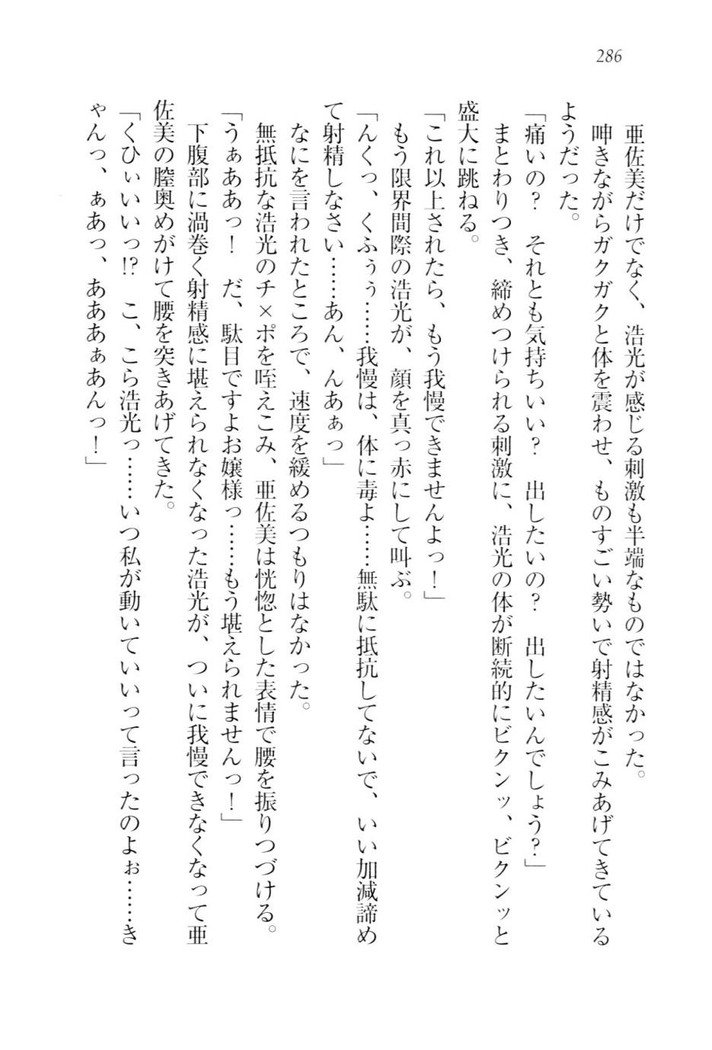 286
亜佐美だけでなく、浩光が感じる刺激も半端なものではなかった。
呻きながらガクガクと体を震わせ、ものすごい勢いで射精感がこみあげてきている
ようだった。
「痛いの?　それとも気持ちいい?　出したいの?　出したいんでしょう?」
まとわりつき、締めつけられる刺激に、浩光の体が断続的にビクンッ、ビクンッと
盛大に跳ねる。
「これ以上されたら、もう我慢できませんよっ!」
もう限界間際の浩光が、顔を真っ赤にして叫ぶ。
「んくっ、くふぅぅ……我慢は、体に毒よ……無駄に抵抗してないで、いい加減諦め
て射精しなさい……あん、んあぁっ」
なにを言われたところで、速度を緩めるつもりはなかった。
無抵抗な浩光のチ×ポを咥えこみ、亜佐美は恍惚とした表情で腰を振りつづける。
「うぁああっ!　だ、駄目ですよお嬢様っ……もう堪えられませんっ!」
下腹部に渦巻く射精感に堪えられなくなった浩光が、ついに我慢できなくなって亜
佐美の膣奥めがけて腰を突きあげてきた。
「くひぃいいっ!?　こ、こら浩光っ……いつ私が動いていいって言ったのよぉ……き
ゃんっ、ぁあっ、あああぁあんっ!」